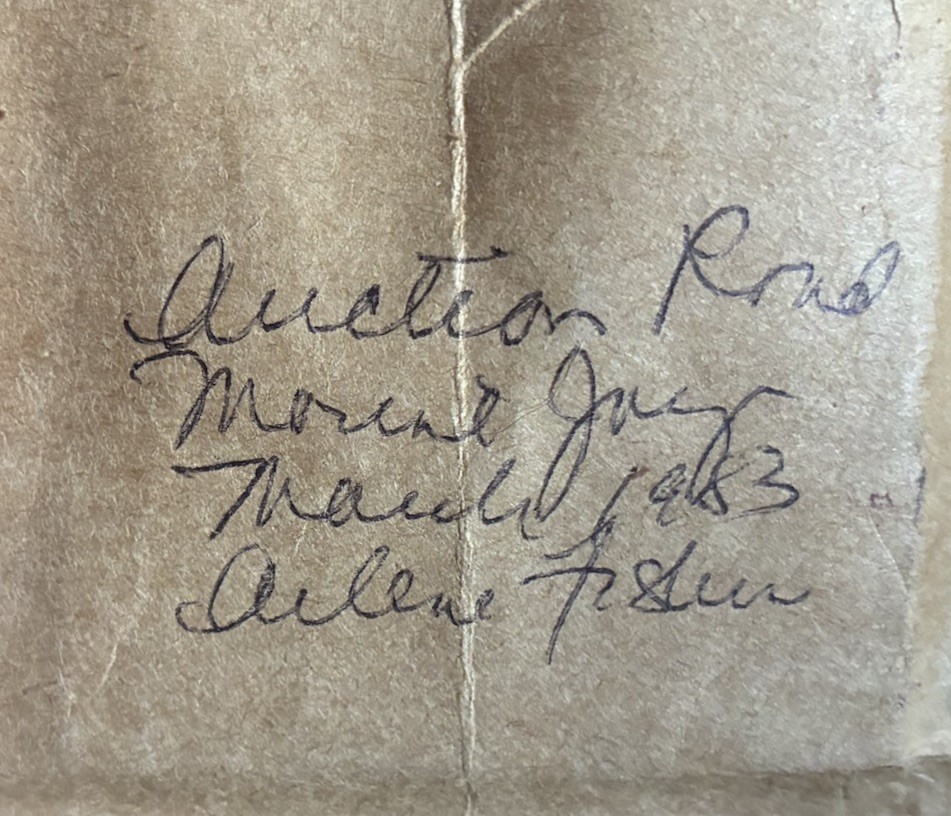 Auction Road
Mount Joy
March 1983
Arlene Fisher